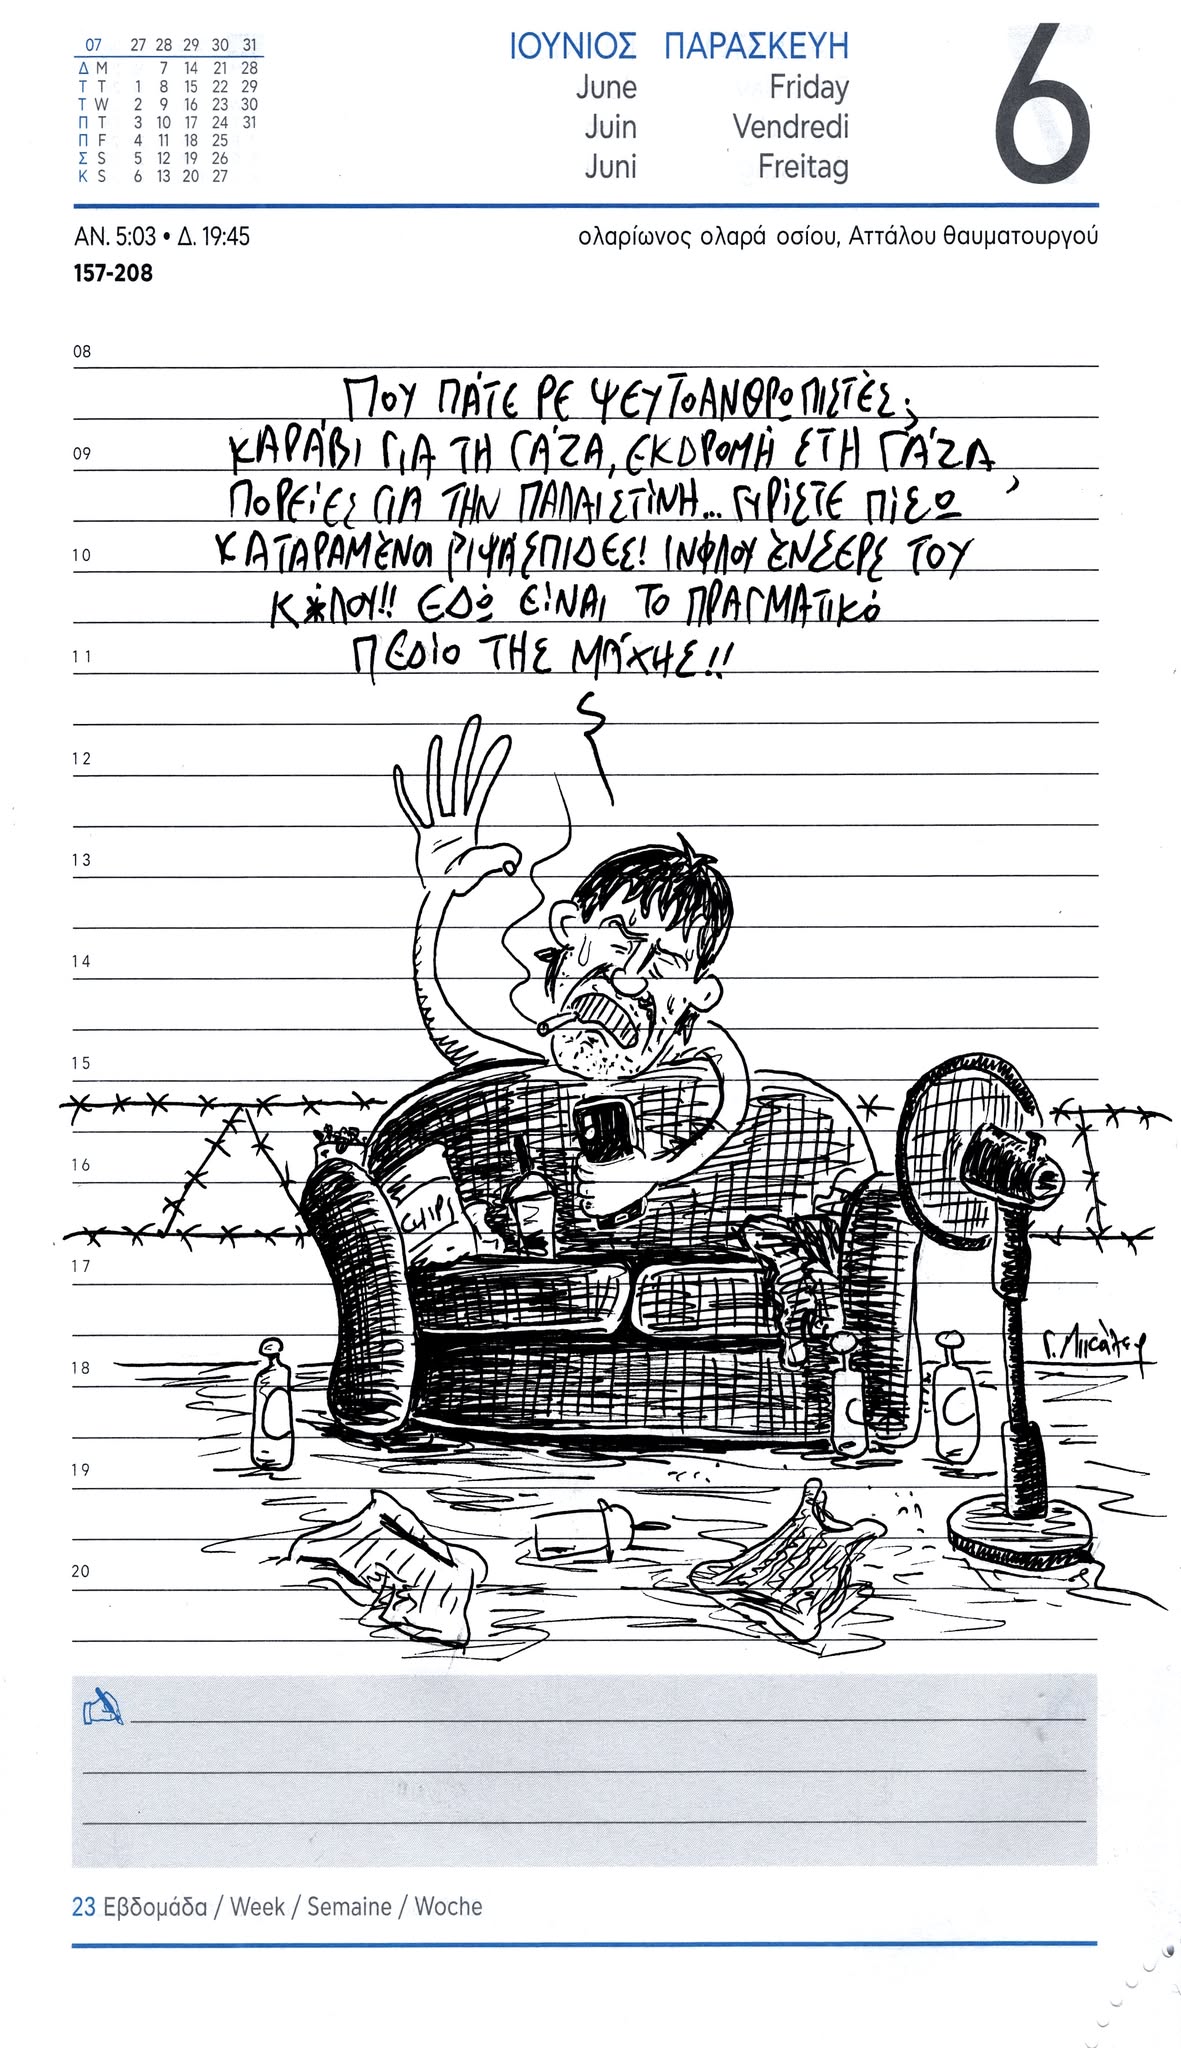 07 27 28 29 30 31
Δ M 7 14 21 28
Τ T 1 8 15 22 29
Τ W 2 9 16 23 30
Π T 3 10 17 24 31
Π F 4 11 18 25
Σ S 5 12 19 26
Κ S 6 13 20 27
ΙΟΥΝΙΟΣ ΠΑΡΑΣΚΕΥΗ
June Friday
Juin Vendredi
Juni Freitag
6
ΑΝ. 5:03 • Δ. 19:45
157-208
ολαρίωνος ολαρά οσίου, Αττάλου θαυματουργού
08
ΠΟΥ ΠΆΤΕ ΡΕ ΨΕΥΤΟΑΝΘΡΩΠΙΣΤΈΣ;
ΚΑΡΆΒΙ ΓΙΑ ΤΗ ΓΆΖΑ, ΕΚΔΡΟΜΉ ΣΤΗ ΓΆΖΑ,
09
ΠΟΡΕΊΕΣ ΓΙΑ ΤΗΝ ΠΑΛΑΙΣΤΊΝΗ... ΓΥΡΊΣΤΕ ΠΊΣΩ
10
ΚΑΤΑΡΑΜΈΝΟΙ ΡΙΨΆΣΠΙΔΕΣ! ΙΝΦΛΟΥΈΝΣΕΡΣ ΤΟΥ
Κ*ΛΟΥ!! ΕΔΏ ΕΊΝΑΙ ΤΟ ΠΡΑΓΜΑΤΙΚΌ
11
ΠΕΔΊΟ ΤΗΣ ΜΆΧΗΣ!!
12
13
14
15
16
CHIPS
17
Γ. Μικάλεφ
18
19
20
23 Εβδομάδα / Week / Semaine / Woche